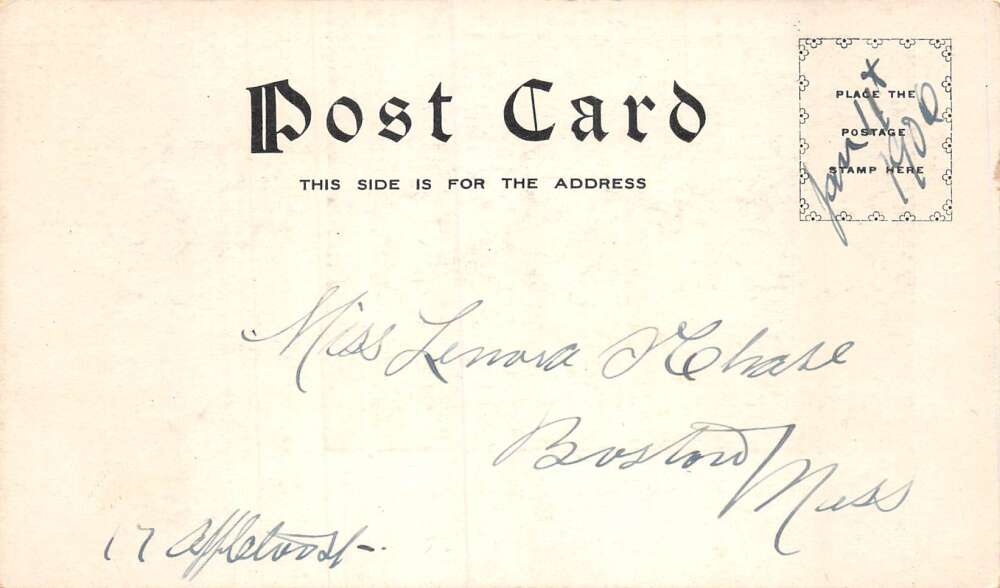 Post Card
THIS SIDE IS FOR THE ADDRESS
PLACE THE
POSTAGE
STAMP HERE
Jan 11th
1906
Miss Lenora H Chase
Boston Mass
17 Appleton St.